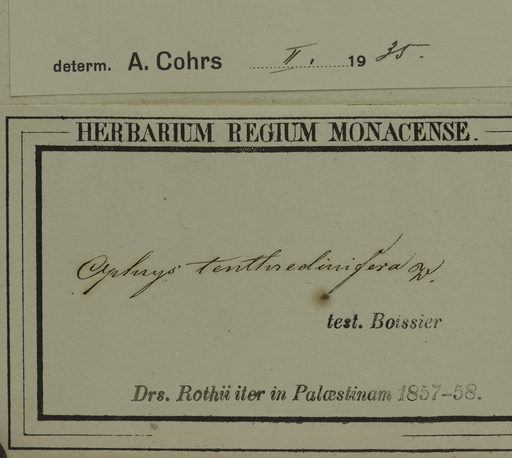 determ. A. Cohrs II. 1935.
HERBARIUM REGIUM MONACENSE.
Ophrys tenthredinifera W.
test. Boissier
Drs. Rothii iter in Palæstinam 1857–58.